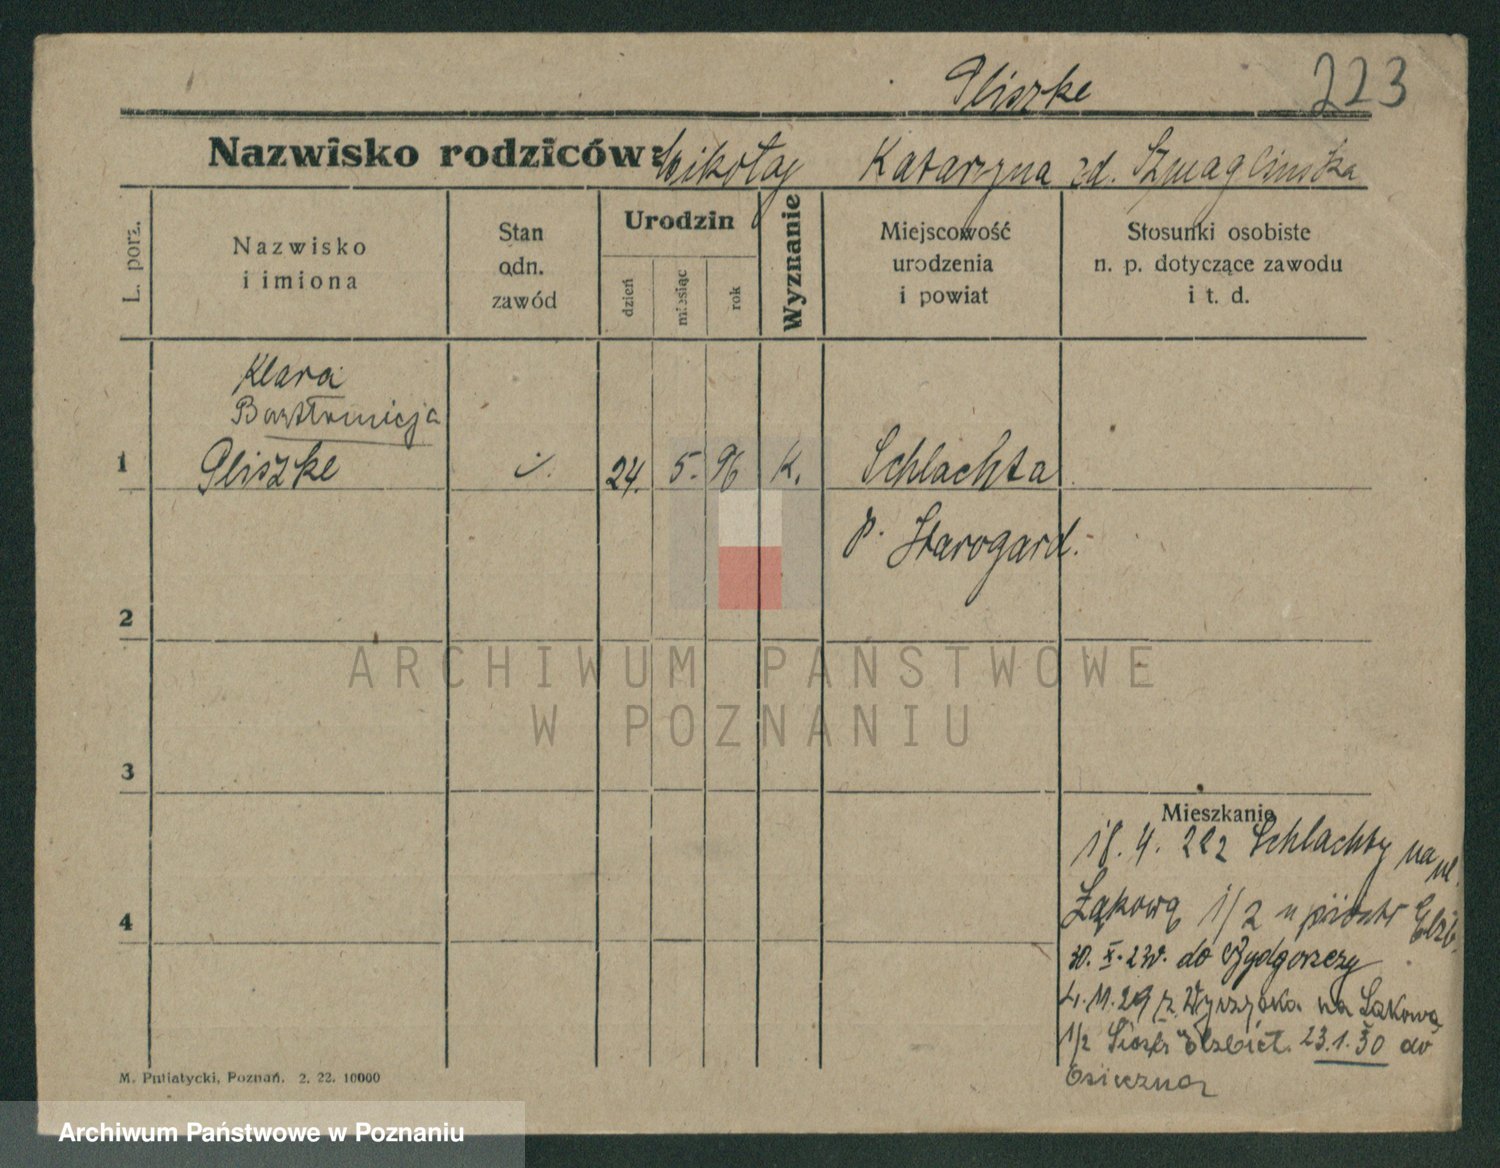 Gliszke 223
Nazwisko rodziców: Mikołaj Katarzyna zd. Szmaglinska
L. porz.
Nazwisko
i imiona
Stan
odn.
zawód
Urodzin
dzień
miesiąc
rok
Wyznanie
Miejscowość
urodzenia
i powiat
Stosunki osobiste
n. p. dotyczące zawodu
i t. d.
Klara
Bartłomieja
1 Gliszke 24. 5. 96 K. Schlachta
p. Starogard.
2
ARCHIWUM PAŃSTWOWE
W POZNANIU
3
Mieszkanie
18. 4. 22 z Schlachty na ul.
4
Łąkową 1/2 u Elżb.
30. X. 23 r. do Bydgoszczy
4. 11. 29 z Wyrzyska na Łąkową
1/2 Siostr Elżbiet. 23.1.30 do
Osieczna
M. Putiatycki, Poznań. 2. 22. 10000
Archiwum Państwowe w Poznaniu